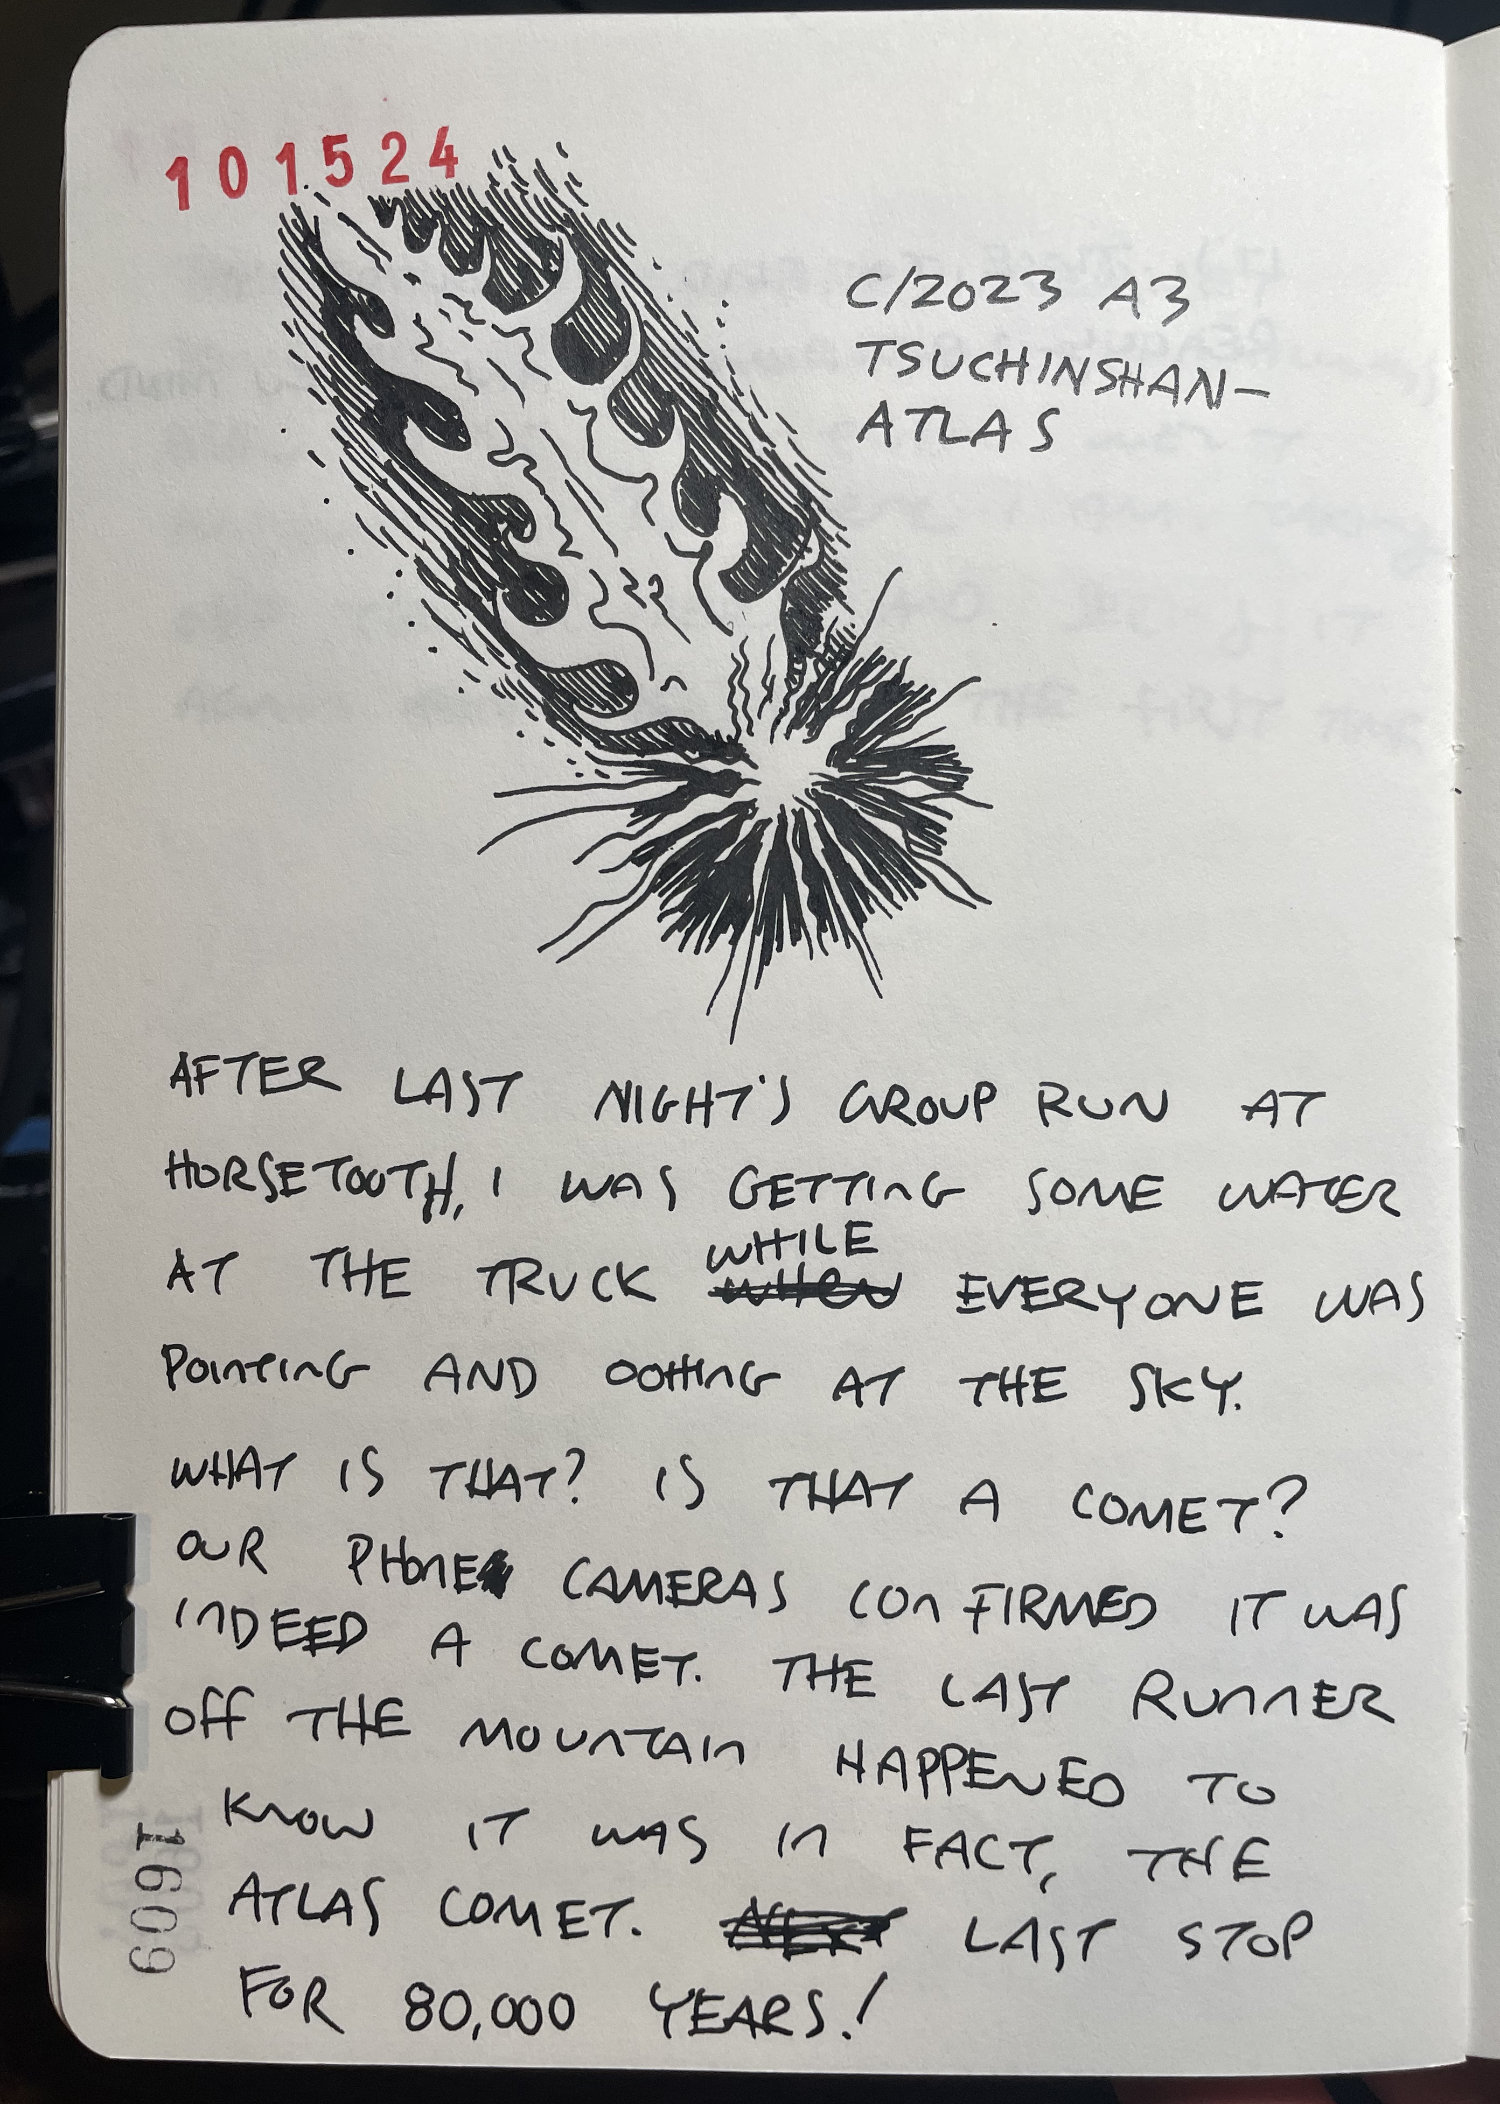 101524
C/2023 A3
TSUCHINSHAN-
ATLAS
AFTER LAST NIGHT'S GROUP RUN AT
HORSETOOTH, I WAS GETTING SOME WATER
AT THE TRUCK WHILE EVERYONE WAS
POINTING AND OOHING AT THE SKY.
WHAT IS THAT? IS THAT A COMET?
OUR PHONE CAMERAS CONFIRMED IT WAS
INDEED A COMET. THE LAST RUNNER
OFF THE MOUNTAIN HAPPENED TO
KNOW IT WAS IN FACT, THE
ATLAS COMET. LAST STOP
FOR 80,000 YEARS!
1609